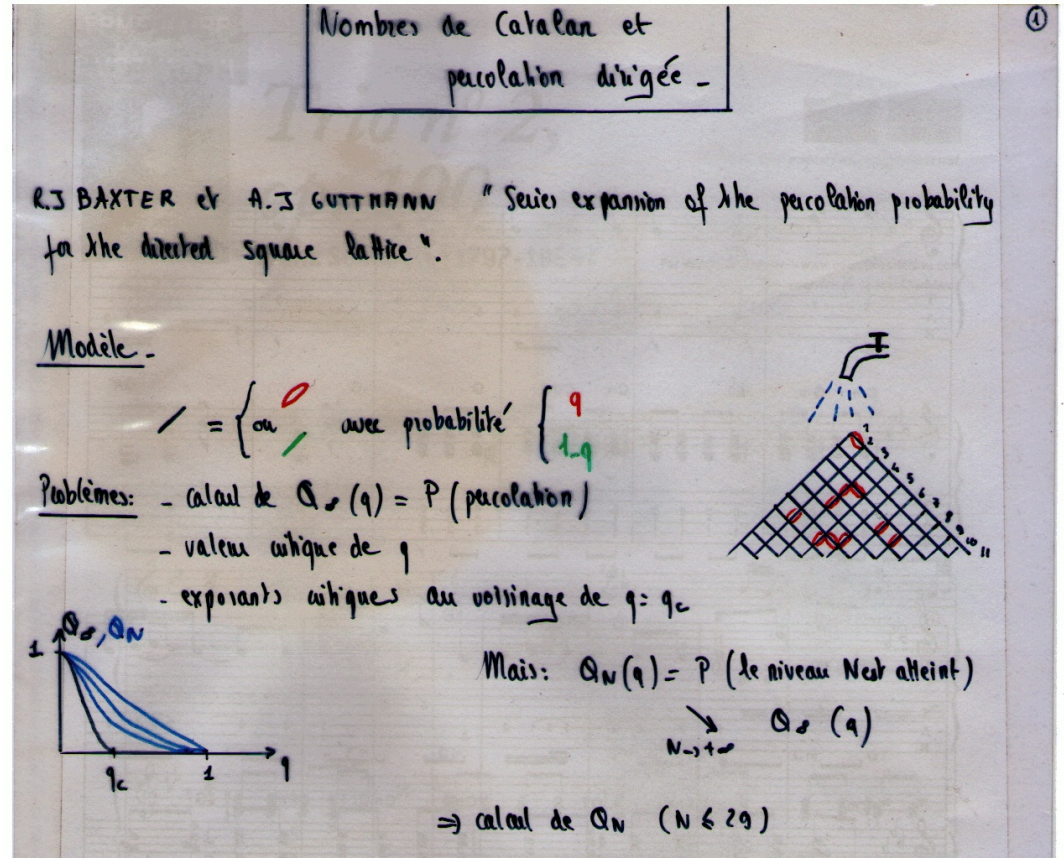 Nombres de Catalan et
percolation dirigée -
1
R.J BAXTER et A.J GUTTMANN " Series expansion of the percolation probability
for the directed square lattice ".
Modèle -
/ = { ou / avec probabilité { q
1-q
Problèmes: - calcul de Q∞(q) = P (percolation)
- valeur critique de q
- exposants critiques au voisinage de q = qc
1 2 3 4 5 6 7 8 9 10 11
Q∞, QN
1
qc 1 q
Mais: QN(q) = P (le niveau N est atteint)
↘ Q∞ (q)
N→+∞
⇒ calcul de QN (N ≤ 29)